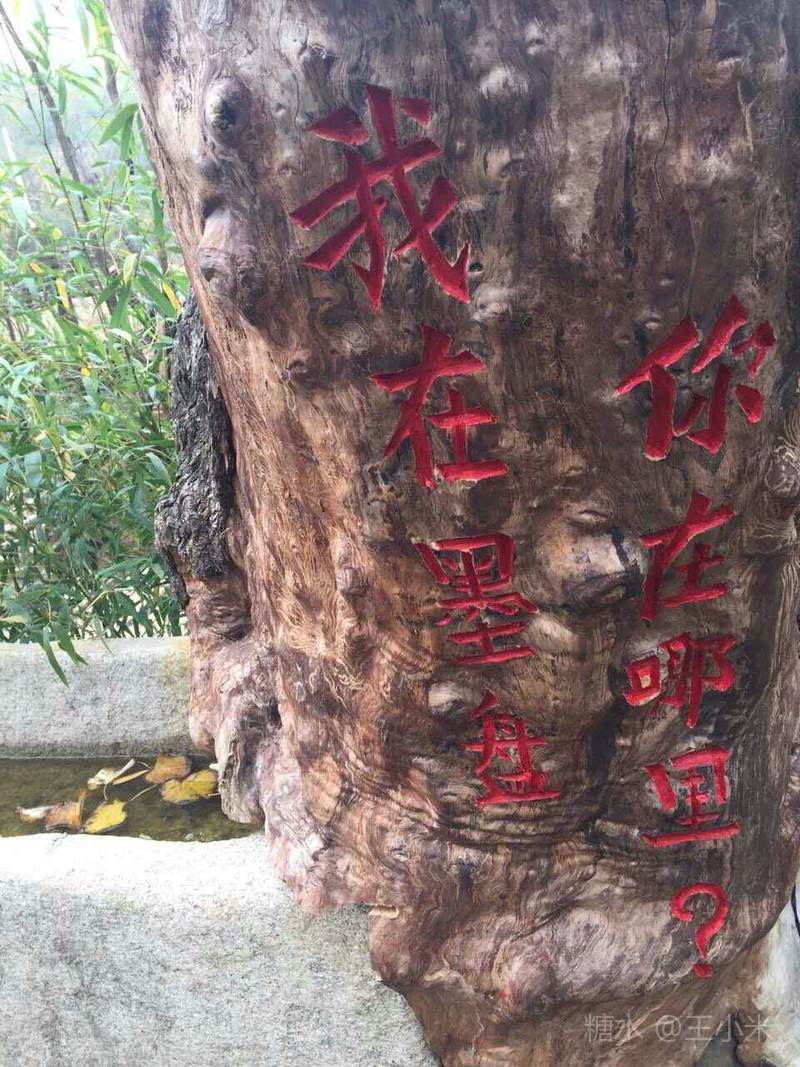 我在墨盘
你在哪里？
糖水 @王小米